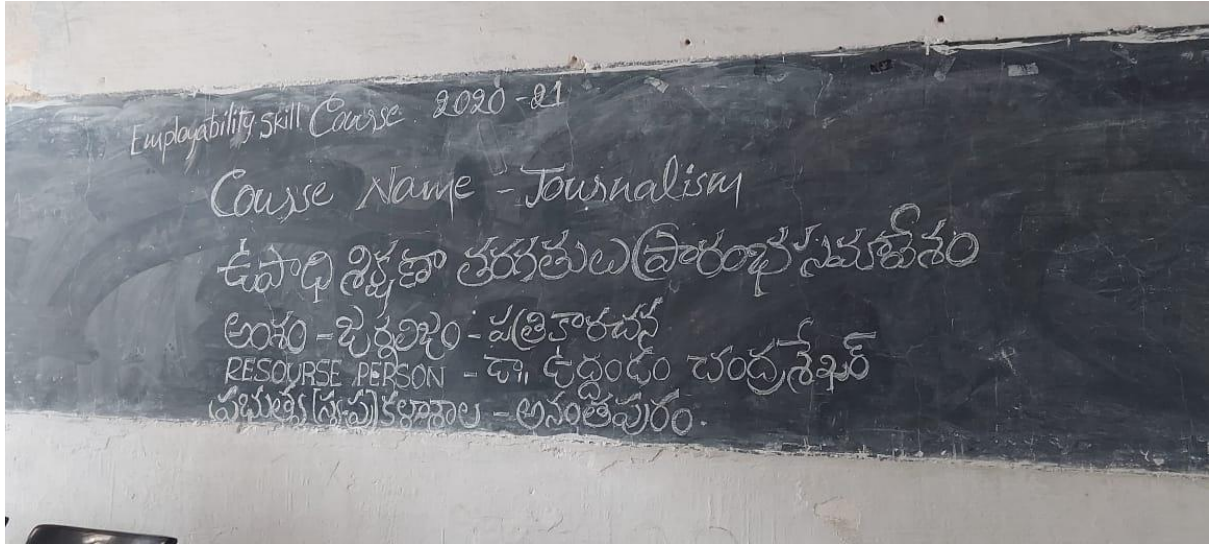 Employability Skill Course. 2020-21
Course Name - Journalism
ఉపాధి శిక్షణా తరగతులు ప్రారంభ సమావేశం
అంశం - జర్నలిజం - పత్రికారచన
RESOURSE PERSON - డా౹౹ ఉద్దండం చంద్రశేఖర్
ప్రభుత్వ (స్వ-ప్ర) కళాశాల - అనంతపురం.